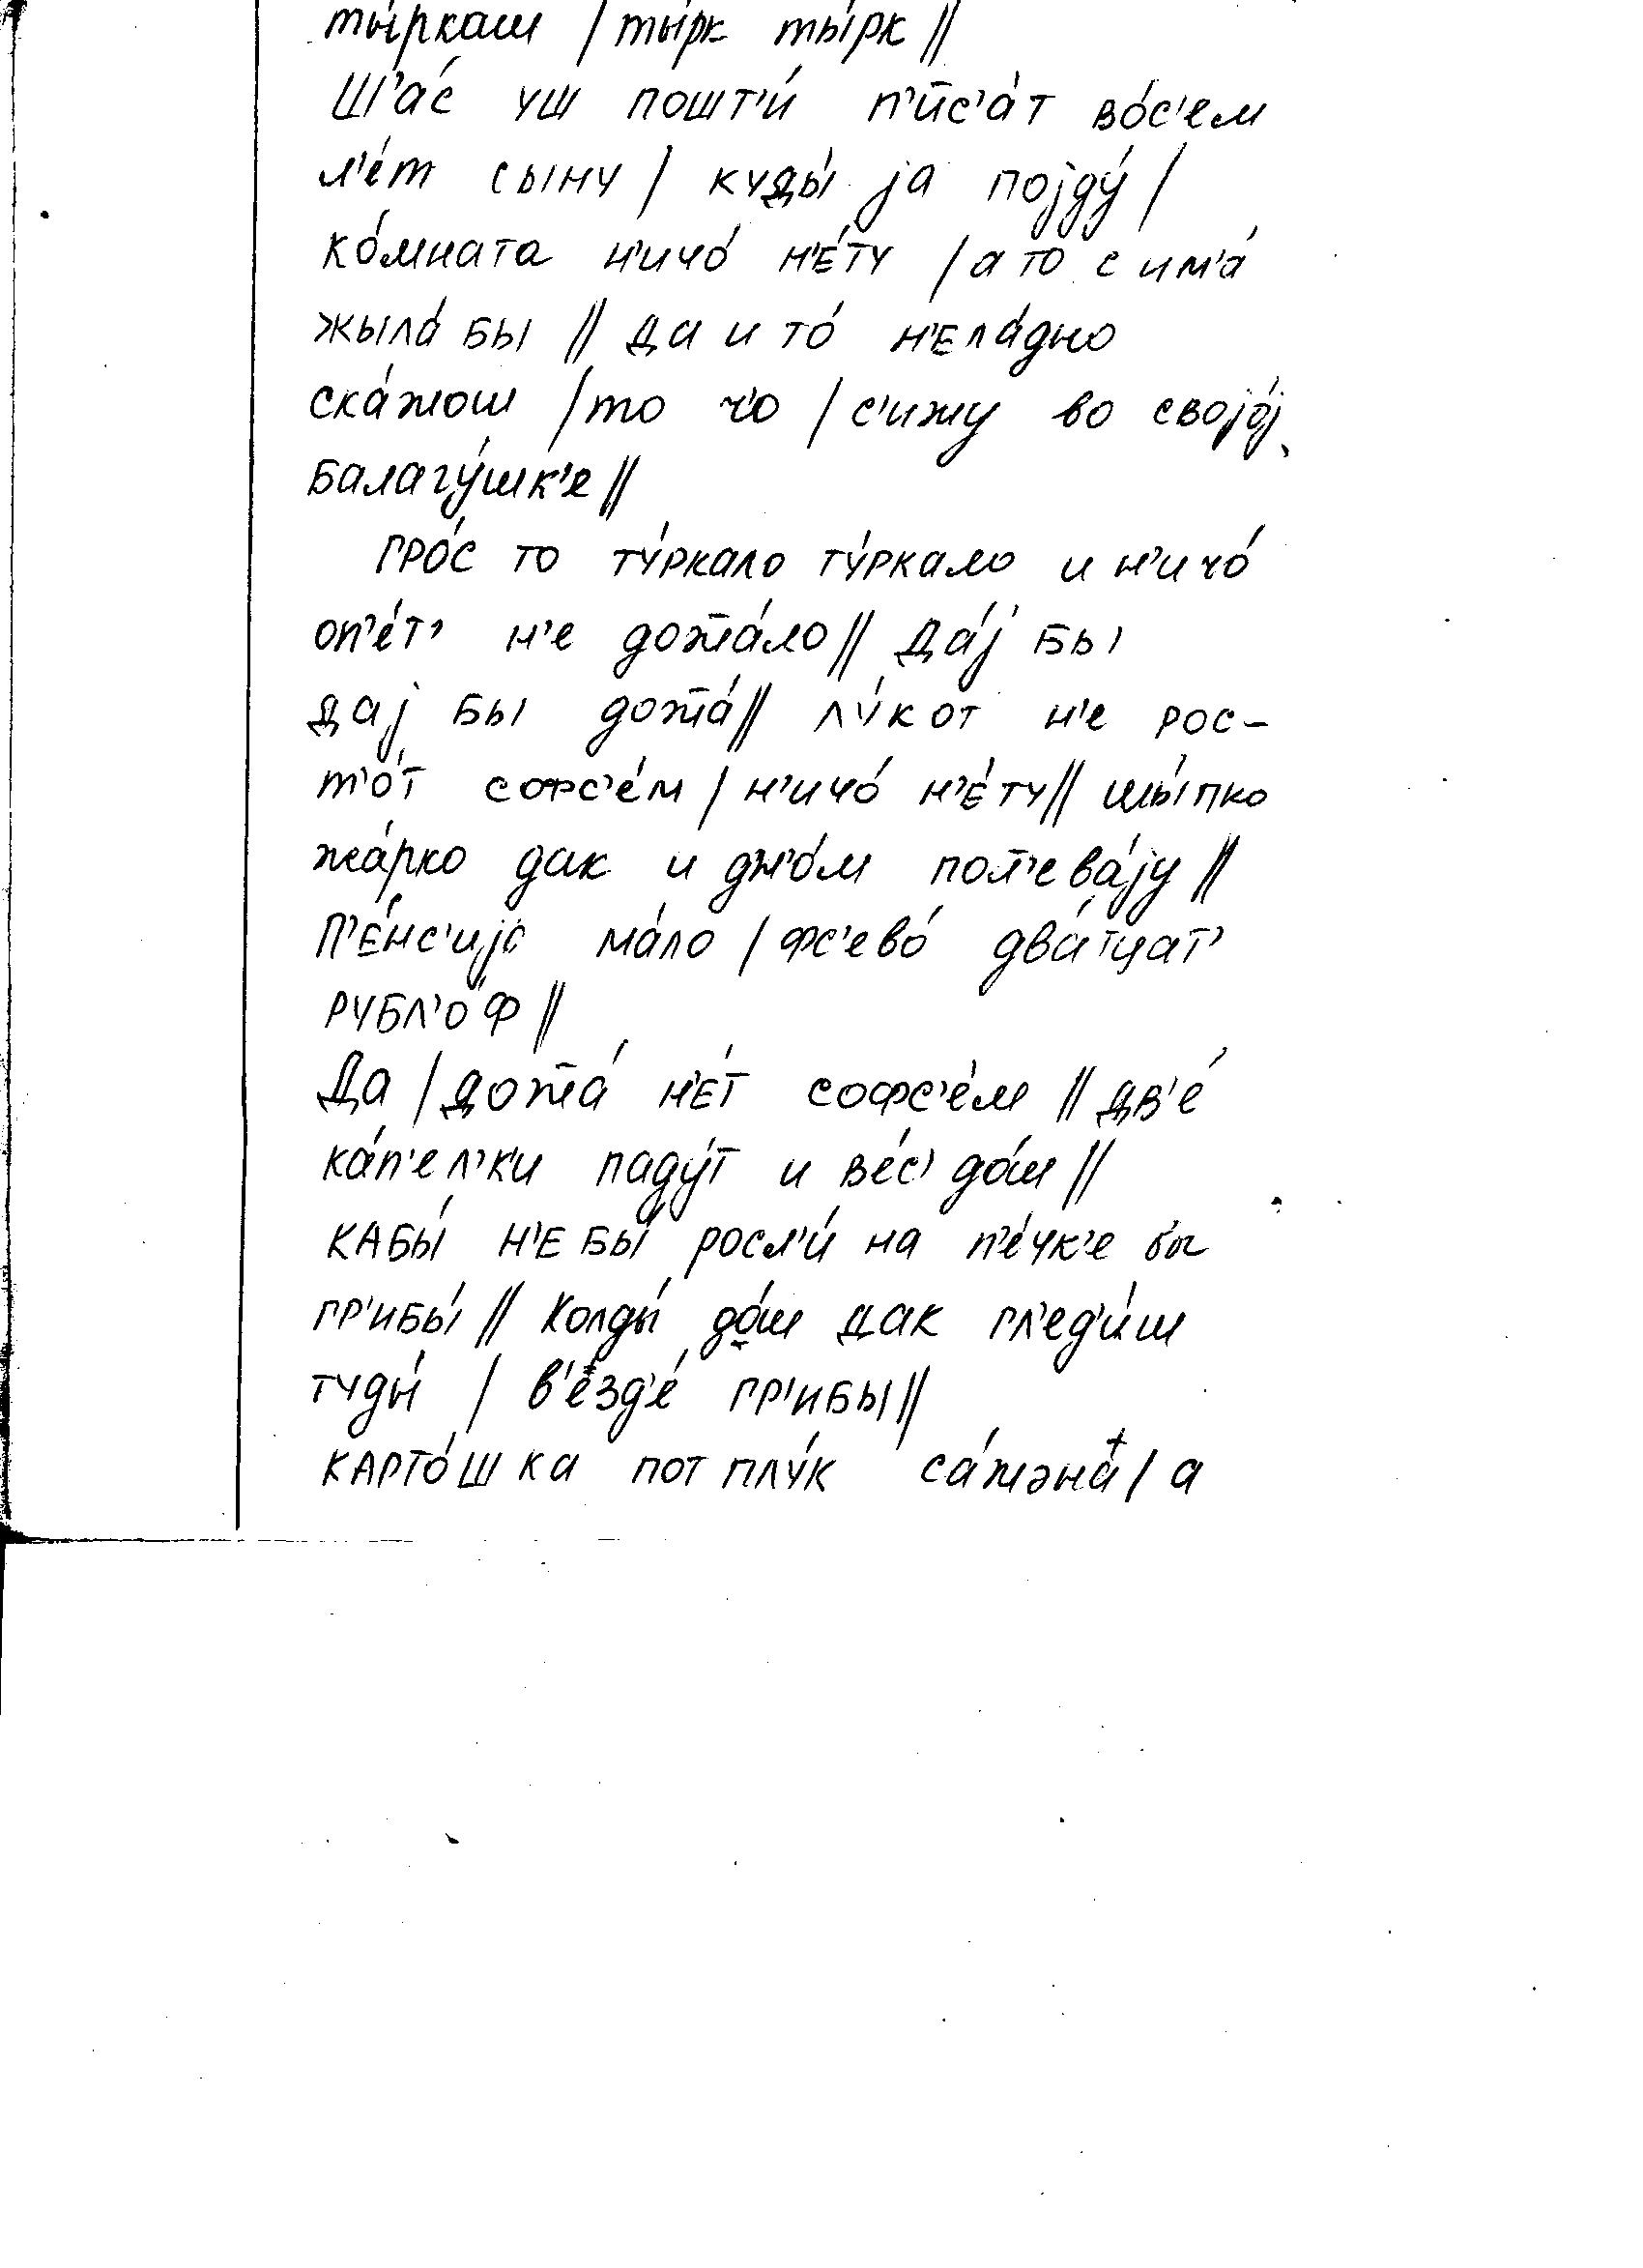 ты́ркаш / ты́рк ты́рк //
Ш'а́с уш пошт'и́ п'ӣс'а́т во́с'ем
л'е́т сыну / куды́ jа поjду́ /
ко́мната н'ичо́ н'е́ту / а то с им'а́
жыла́ бы // да и то́ н'ела́дно
ска́жош / то ч'о / с'ижу во своjо́j
балагу́шк'е //
гро́с то ту́ркало ту́ркало и н'ичо́
оп'е́т' н'е дож̄а́ло // Да́j бы
даj бы дож̄а́ // лу́к от н'е рос-
т'о́т софс'е́м / н'ичо́ н'е́ту // шы́пко
жа́рко дак и дн'о́м пол'ева́jу //
П'е́нс'иjа ма́ло / фс'ево́ два́тцат'
рубл'о́ф //
Да / дож̄а́ н'е́т софс'е́м // дв'е́
ка́п'ел'к'и паду́т и ве́с' до́ш //
кабы́ н'е бы́ росл'и́ на п'е́чк'е бы
гр'ибы́ // Колды́ до́ш дак гл'ед'и́ш
туды́ / в'езд'е́ гр'ибы //
карто́шка пот плу́к са́жэна / а